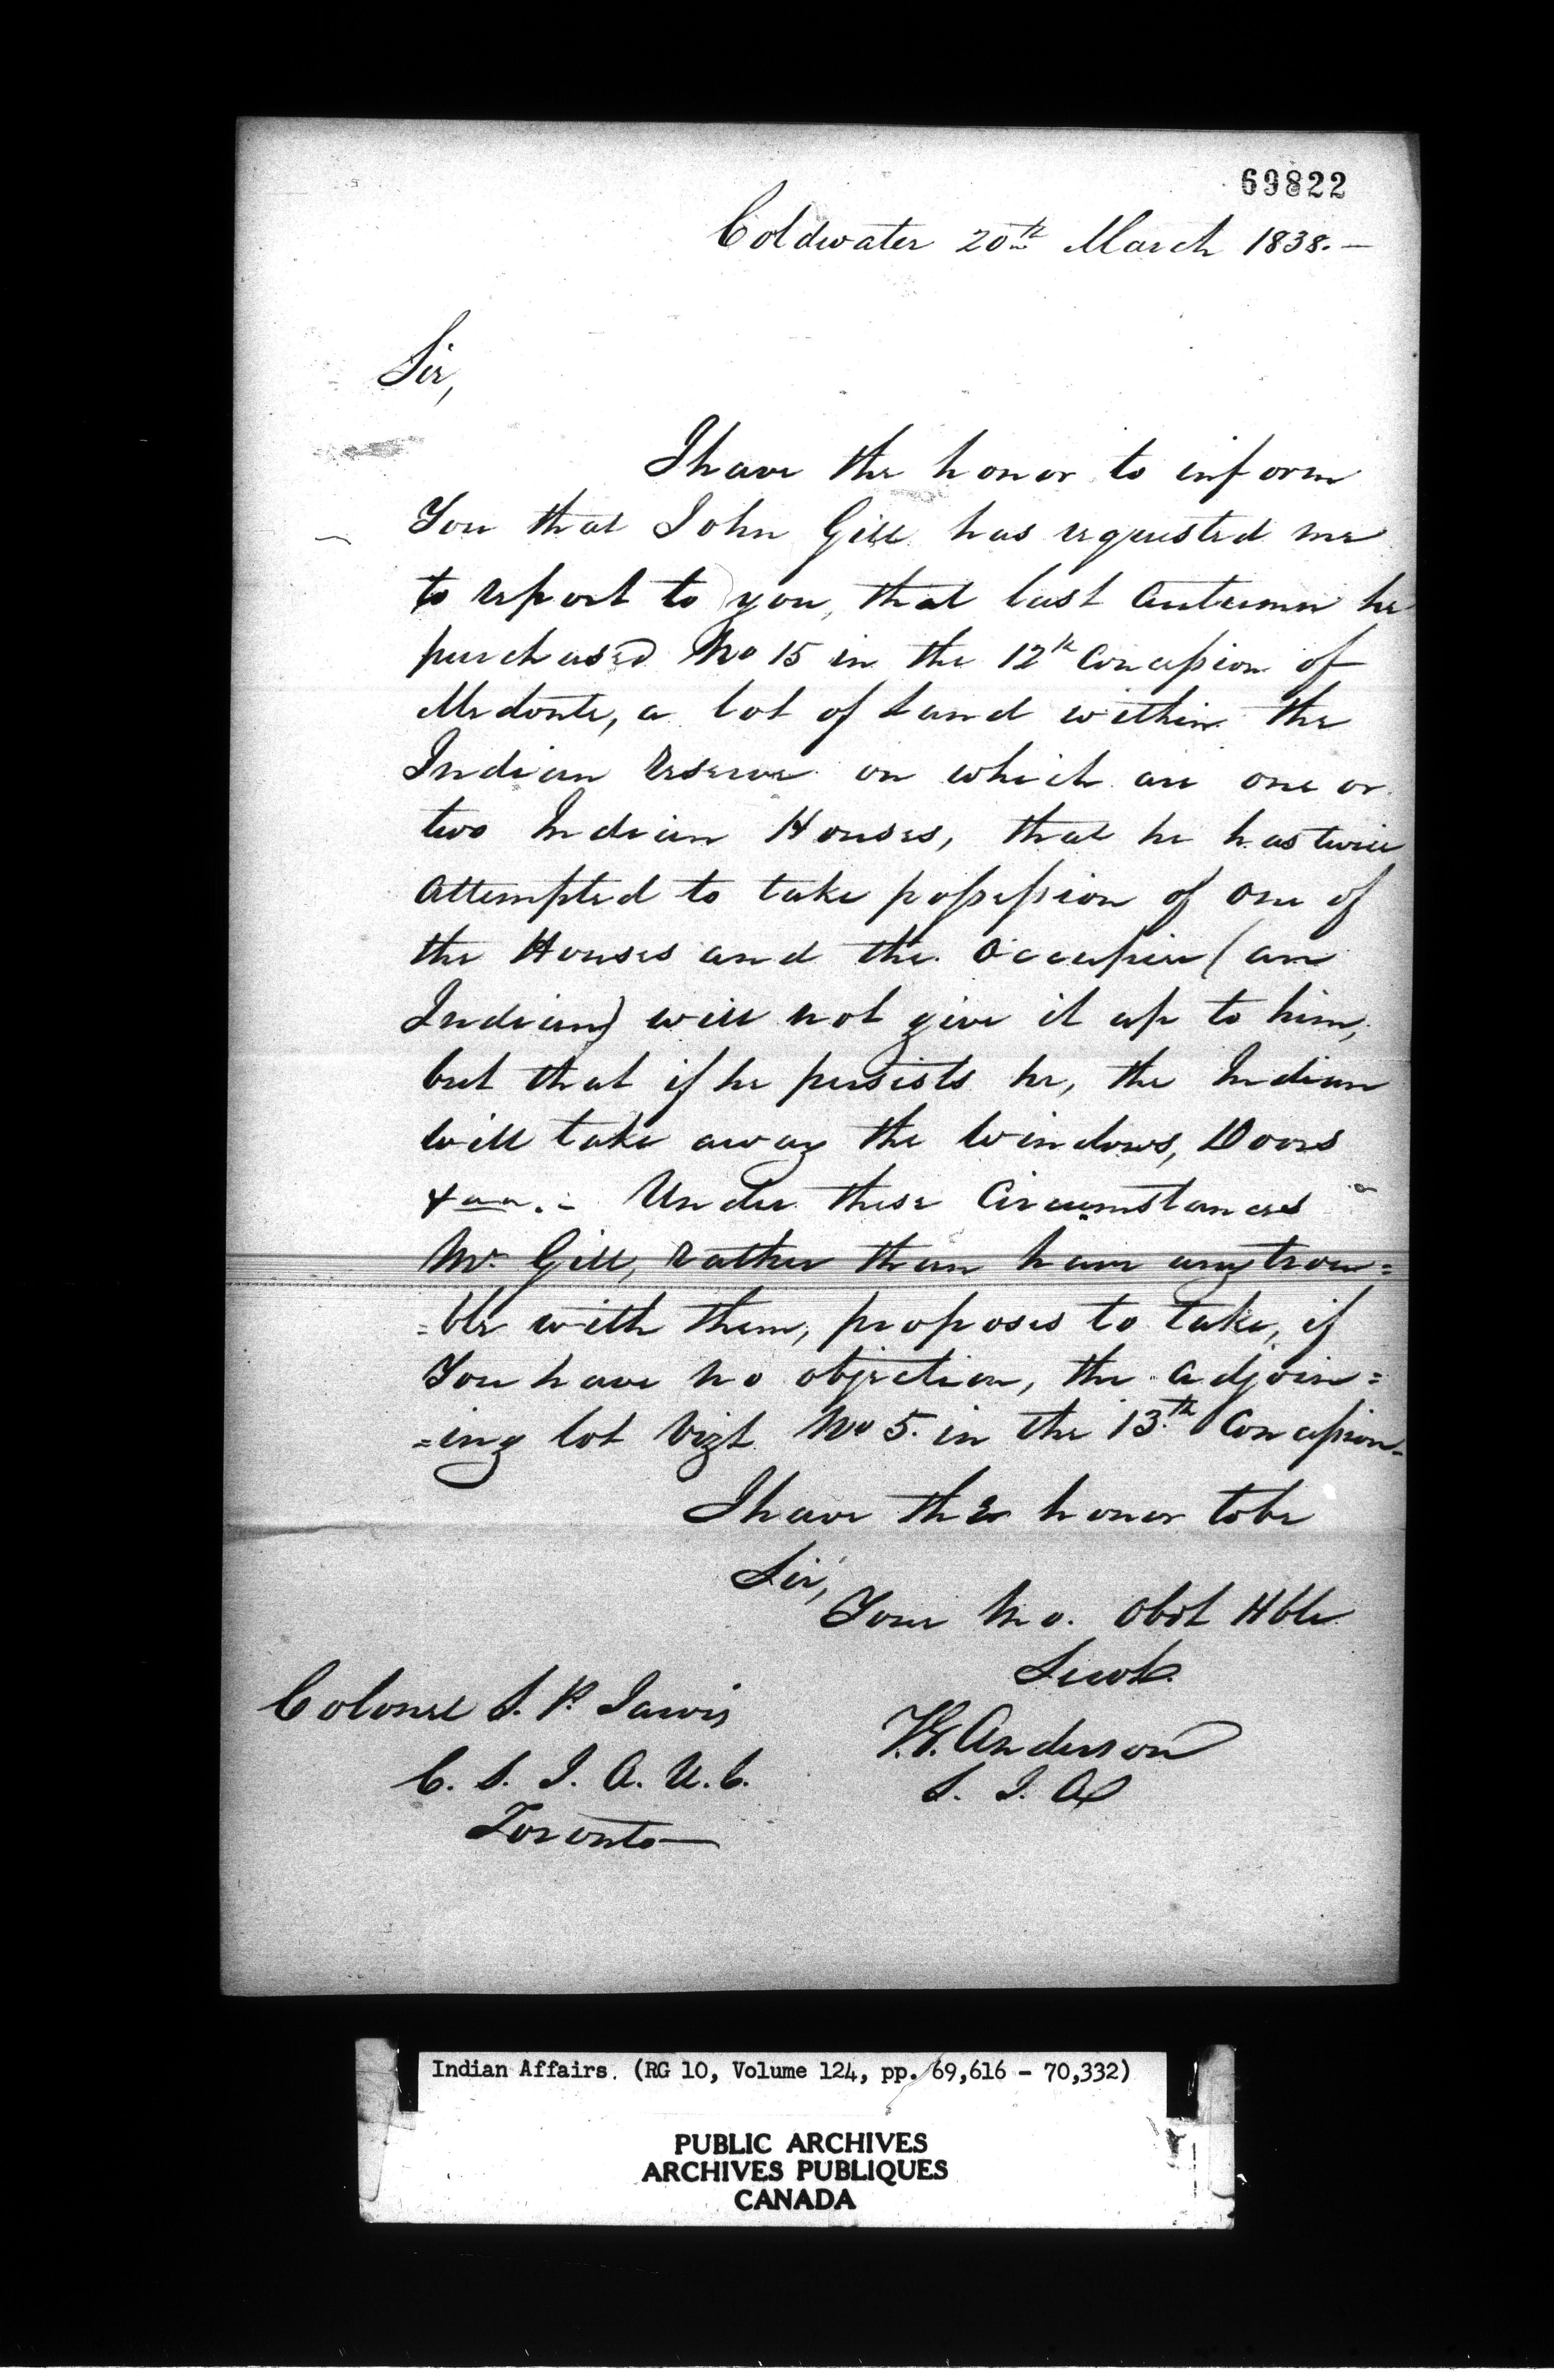 69822
Coldwater 20th March 1838.—
Sir,
I have the honor to inform
You that John Gill has requested me
to report to you, that last Autumn he
purchased No 15 in the 12th Concession of
Medonte, a lot of Land within the
Indian Reserve on which are one or
two Indian Houses, that he has twice
Attempted to take possession of One of
the Houses and the Occupier (an
Indian) will not give it up to him,
but that if he persists he, the Indian
will take away the Windows, Doors
Under these Circumstances
Mr Gill, rather than have any trou=
=ble with them, proposes to take, if
You have no objection, the adjoin=
=ing lot Vizt No 5. in the 13th Concession-
I have the honor to be
Sir,
Your Mo. Obdt Hble
Servt.
Colonel S. P. Jarvis
T. G. Anderson
C. S. I. A. U. C.
S. I. A
Toronto
Indian Affairs. (RG 10, Volume 124, pp. 69,616 - 70,332)
PUBLIC ARCHIVES
ARCHIVES PUBLIQUES
CANADA